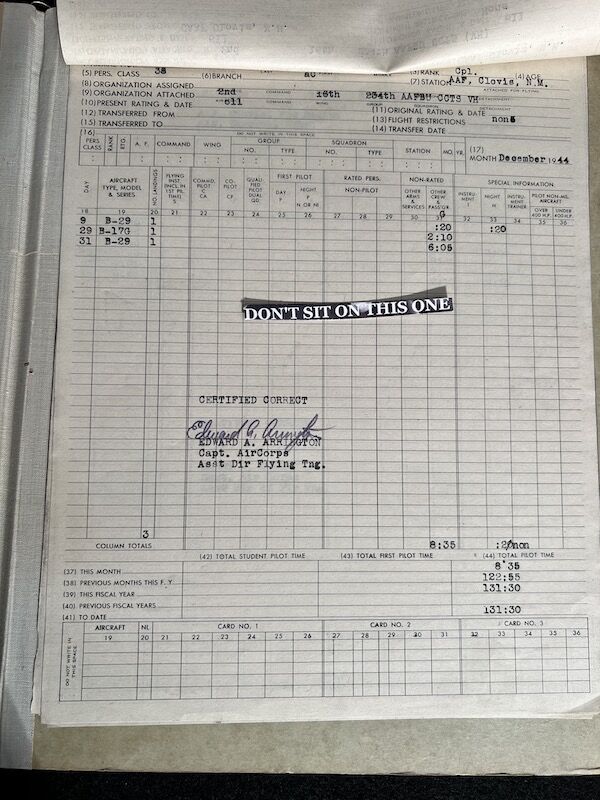 (5) PERS. CLASS 38 (6) BRANCH (3) RANK Cpl. (4) AGE
(7) STATION AAF, Clovis, N.M.
(8) ORGANIZATION ASSIGNED
(9) ORGANIZATION ATTACHED 2nd 16th 234th AAFBU CCTS VH
COMMAND WING DETACHMENT
(10) PRESENT RATING & DATE (11) ORIGINAL RATING & DATE
(12) TRANSFERRED FROM (13) FLIGHT RESTRICTIONS none
(15) TRANSFERRED TO (14) TRANSFER DATE
(16) DO NOT WRITE IN THIS SPACE
PERS CLASS RANK RTG. A. F. COMMAND WING GROUP SQUADRON STATION MO. YR. (17)
NO. TYPE NO. TYPE MONTH December 1944
DAY AIRCRAFT TYPE, MODEL & SERIES NO. LANDINGS FLYING INST. (INCL. IN 1ST PIL. TIME) S COMMD. PILOT C CA CO-PILOT CP QUALIFIED PILOT DUAL QD FIRST PILOT DAY NIGHT N OR NI RATED PERS. NON-PILOT NON-RATED OTHER ARMS & SERVICES OTHER CREW & PASS'GR SPECIAL INFORMATION INSTRUMENT I NIGHT N INSTRUMENT TRAINER PILOT NON-MIL. AIRCRAFT OVER 400 H.P. UNDER 400 H.P.
18 19 20 21 22 23 24 25 26 27 28 29 30 31 32 33 34 35 36
G
9 B-29 1 :20 :20
29 B-17G 1 2:10
31 B-29 1 6:05
DON'T SIT ON THIS ONE
CERTIFIED CORRECT
Edward A. Arrington
EDWARD A. ARRINGTON
Capt. AirCorps
Asst Dir Flying Tng.
3
COLUMN TOTALS 8:35
(42) TOTAL STUDENT PILOT TIME (43) TOTAL FIRST PILOT TIME (44) TOTAL PILOT TIME
(37) THIS MONTH 8:35
(38) PREVIOUS MONTHS THIS F. Y. 122:55
(39) THIS FISCAL YEAR 131:30
(40) PREVIOUS FISCAL YEARS
(41) TO DATE 131:30
AIRCRAFT NL CARD NO. 1 CARD NO. 2 CARD NO. 3
19 20 21 22 23 24 25 26 27 28 29 30 31 32 33 34 35 36
DO NOT WRITE IN THIS SPACE